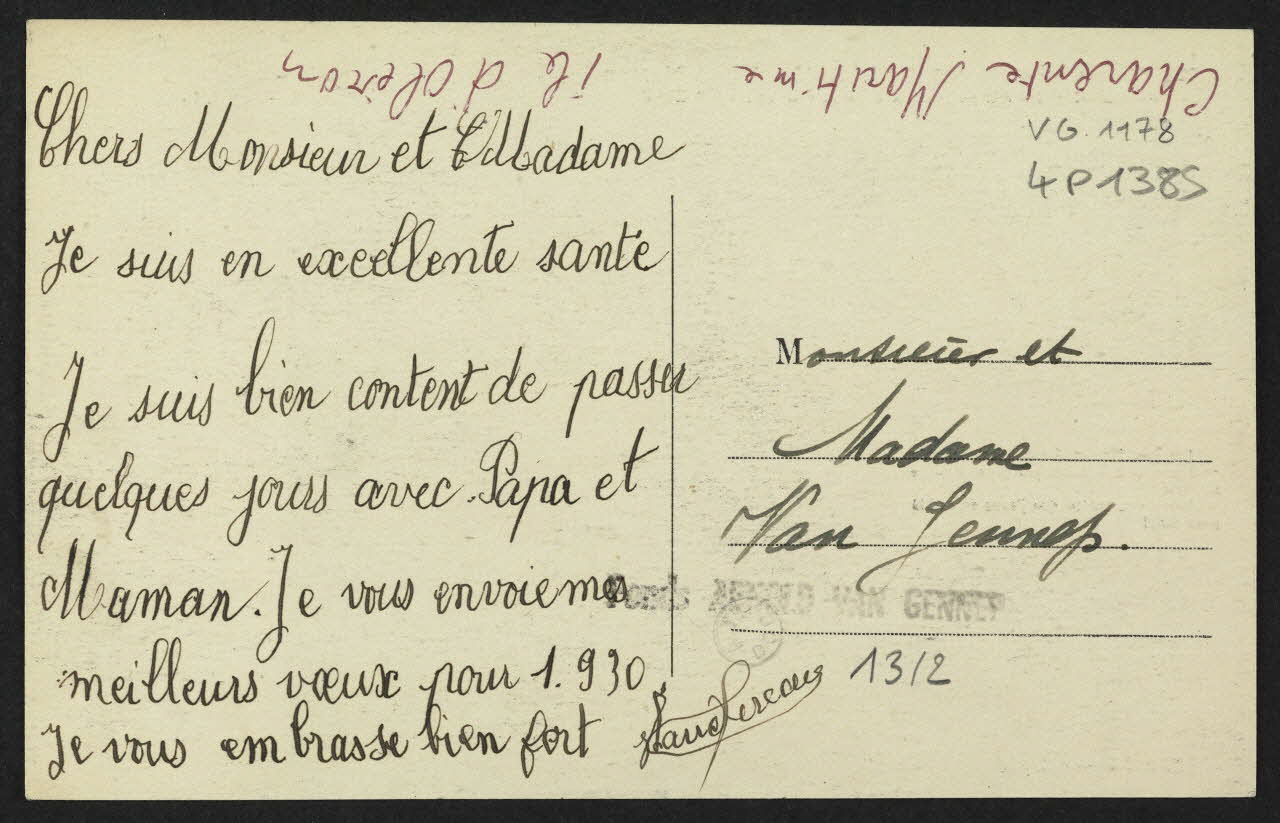 Charente Maritime île d'Oléron
VG 1178
4P1385
Chers Monsieur et Madame
Je suis en excellente santé
Je suis bien content de passer
quelques jours avec Papa et
Maman. Je vous envoie mes
meilleurs vœux pour 1.930
Je vous embrasse bien fort
Monsieur et
Madame
Van Gennep.
Fonds ARNOLD VAN GENNEP
13/2